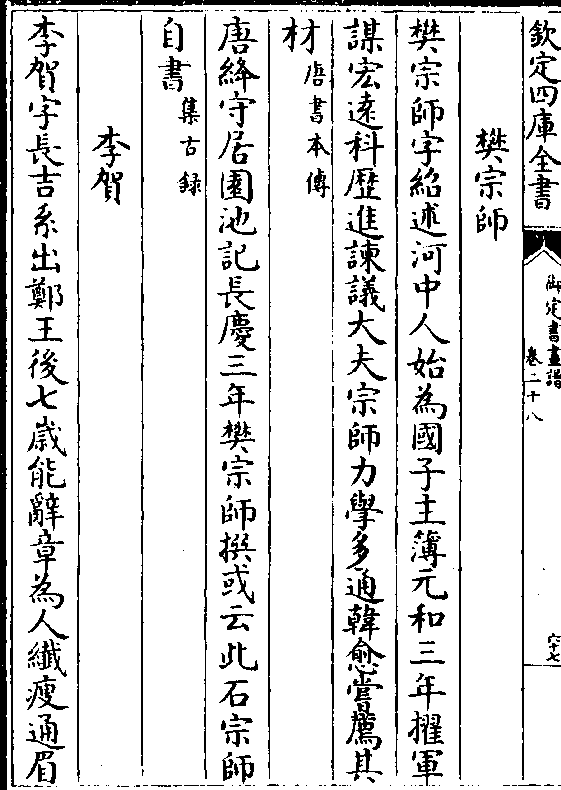 欽定四庫全書
御定書畫譜
卷二十八
六十七
樊宗師
樊宗師字紹述河中人始為國子主簿元和三年擢軍
謀宏遠科歷進諫議大夫宗師力學多通韓愈嘗薦其
材唐書本傳
唐絳守居園池記長慶三年樊宗師撰或云此石宗師
自書集古録
李賀
李賀字長吉系出鄭王後七歲能辭章為人纖瘦通眉